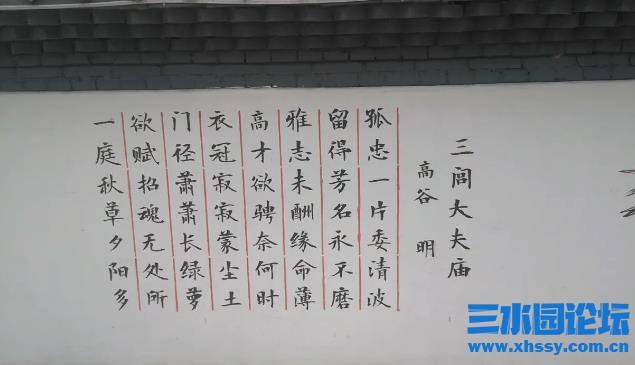 三闾大夫庙
高谷 明
孤忠一片委清波
留得芳名永不磨
雅志未酬缘命薄
高才欲骋奈何时
衣冠寂寂蒙尘土
门径萧萧长绿萝
欲赋招魂无处所
一庭秋草夕阳多
三水园论坛
www.xhssy.com.cn